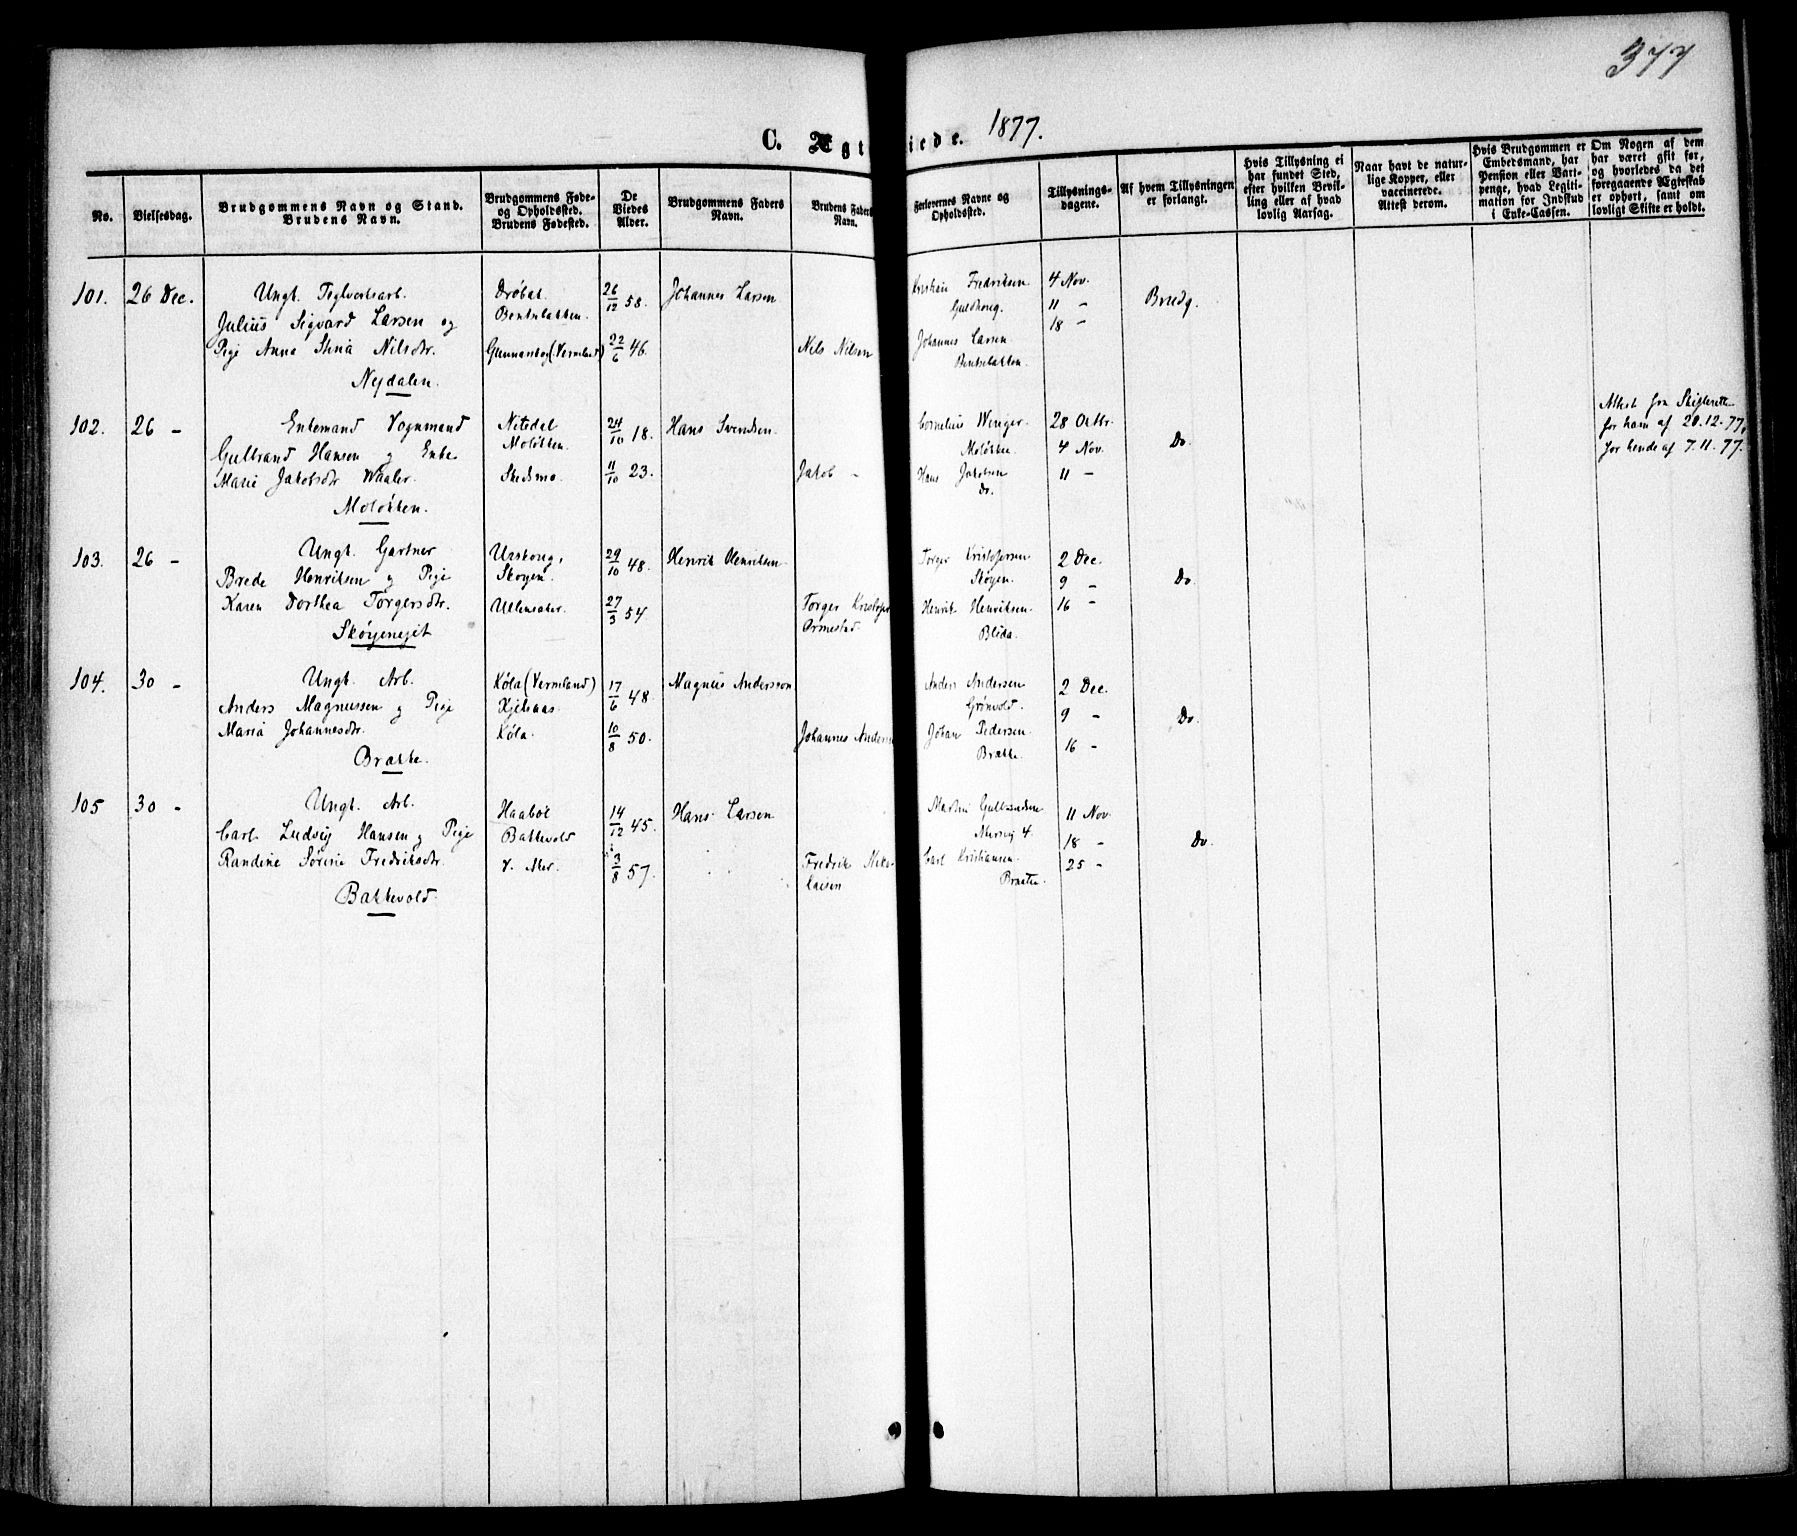 377
C. Ægt iede. 1877.
No.
Vielsesdag.
Brudgommens Navn og Stand.
Brudens Navn.
Brudgommens Føde-
og Opholdssted.
Brudens Fødested.
De
Viedes
Alder.
Brudgommens Faders
Navn.
Brudens Faders
Navn.
Forlovernes Navne og
Opholdssted.
Tillysnings-
dagene.
Af hvem Tillysningen
er forlangt.
Hvis Tillysning ei
har fundet Sted,
efter hvilken Bevil-
ling eller af hvad
lovlig Aarsag.
Naar havt de natur-
lige Kopper, eller
vaccinerede.
Attest derom.
Hvis Brudgommen er
Embedsmand, har
Pension eller Vart-
penge, hvad Legiti-
mation for Indskud
i Enke-Cassen.
Om Nogen af dem
har været gift før,
og hvorledes da det
foregaaende Ægteskab
er ophørt, samt om
lovligt Skifte er holdt.
101. 26 Dec.
Ungk. Teglverksarb.
Julius Sigvard Larsen og
Pige Anna Stina Nilsdtr.
Nejdalen.
Drøbak
Bentsebakken.
Gunnarskog (Vermland)
26/12 58.
22/6 46.
Johannes Larsen
Nils Nilsen
Kristian Fredriksen
Guldhoug.
Johannes Larsen
Bentsebakken.
4 Nov.
11 -
18 -
Brudg.
102. 26 -
Enkemand Vognmand
Gulbrand Hansen og Enke
Marie Jakobsdtr Waaler.
Moløkken.
Nitedal
Moløkken.
Skedsmo.
24/10 18.
11/10 23.
Hans Svendsen.
Jakob -
Cornelius Winger.
Moløkken
Hans Jakobsen
do.
28 Octbr.
4 Nov.
11 -
Do.
Attest fra Skifteretten
for ham af 20.12.77,
for hende af 7.11.77.
103. 26 -
Ungk. Gartner
Brede Henriksen og Pige
Karen Dorthea Torgersdtr.
Skøyenejet
Urskoug,
Skøyen.
Ullensaker.
29/10 48.
27/3 54.
Henrik Henriksen
Torger Kristofer
Ormestad
Torger Kristofersen
Skøyen.
Henrik Henriksen
Blida.
2 Dec.
9 -
16 -
Do.
104. 30 -
Ungk. Arb.
Anders Magnussen og Pige
Maria Johannesdtr.
Brække.
Køla (Vermland)
Kjelsaas.
Køla.
17/6 48.
10/8 50.
Magnus Andersson
Johannes Anders
Anders Andersen
Grønvold.
Johan Pedersen
Brække.
2 Dec.
9 -
16 -
Do.
105 30 -
Ungk. Arb.
Carl Ludvig Hansen og Pige
Randine Sørine Fredriksdtr.
Bakkevold.
Haabøl
Bakkevold
V. Aker.
14/12 45.
3/8 57.
Hans Larsen
Fredrik Niko-
laisen
Martin Gulbrandsen
4.
Carl Kristiansen
Braaten.
11 Nov.
18 -
25 -
Do.